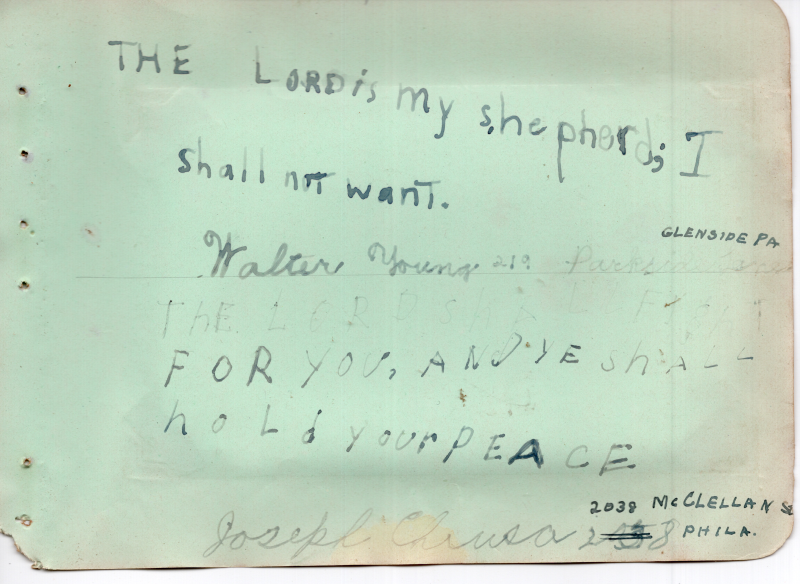 THE LORD is my shepherd; I
shall not want.
GLENSIDE PA
Walter Young 219 Parkside
THE LORD ShALL FIGhT
FOR YOU, AND YE ShALL
hOLd yOUr PEACE
2038 McCLELLAN St
Joseph
PHILA.